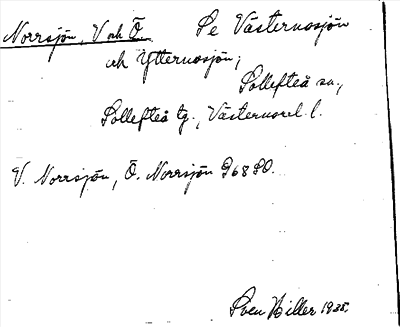 Norrsjön, V. och Ö. Se Västernorsjön
och Ytternorsjön,
Sollefteå sn.,
Sollefteå tg., Västernorrl. l.
V. Norrsjön, Ö. Norrsjön G68SO.
Sven Hiller 1935.